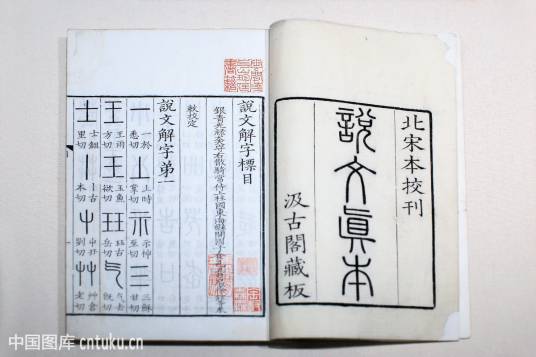 北宋本校刊
說文眞本
汲古閣藏板
說文解字標目
銀青光祿大夫守右散騎常侍上柱國東海縣開國子食邑五百戶臣徐鉉等奉
敕校定
說文解字第一
一 一於悉切 丄 上時掌切 示 示神至切 三 三穌甘切
王 王雨方切 玉 玉魚欲切 玨 玨古岳切 气 气去旣切
士 士鉏里切 丨 丨古本切 屮 屮丑列切 艸 艸倉老切
中国图库 cntuku.cn